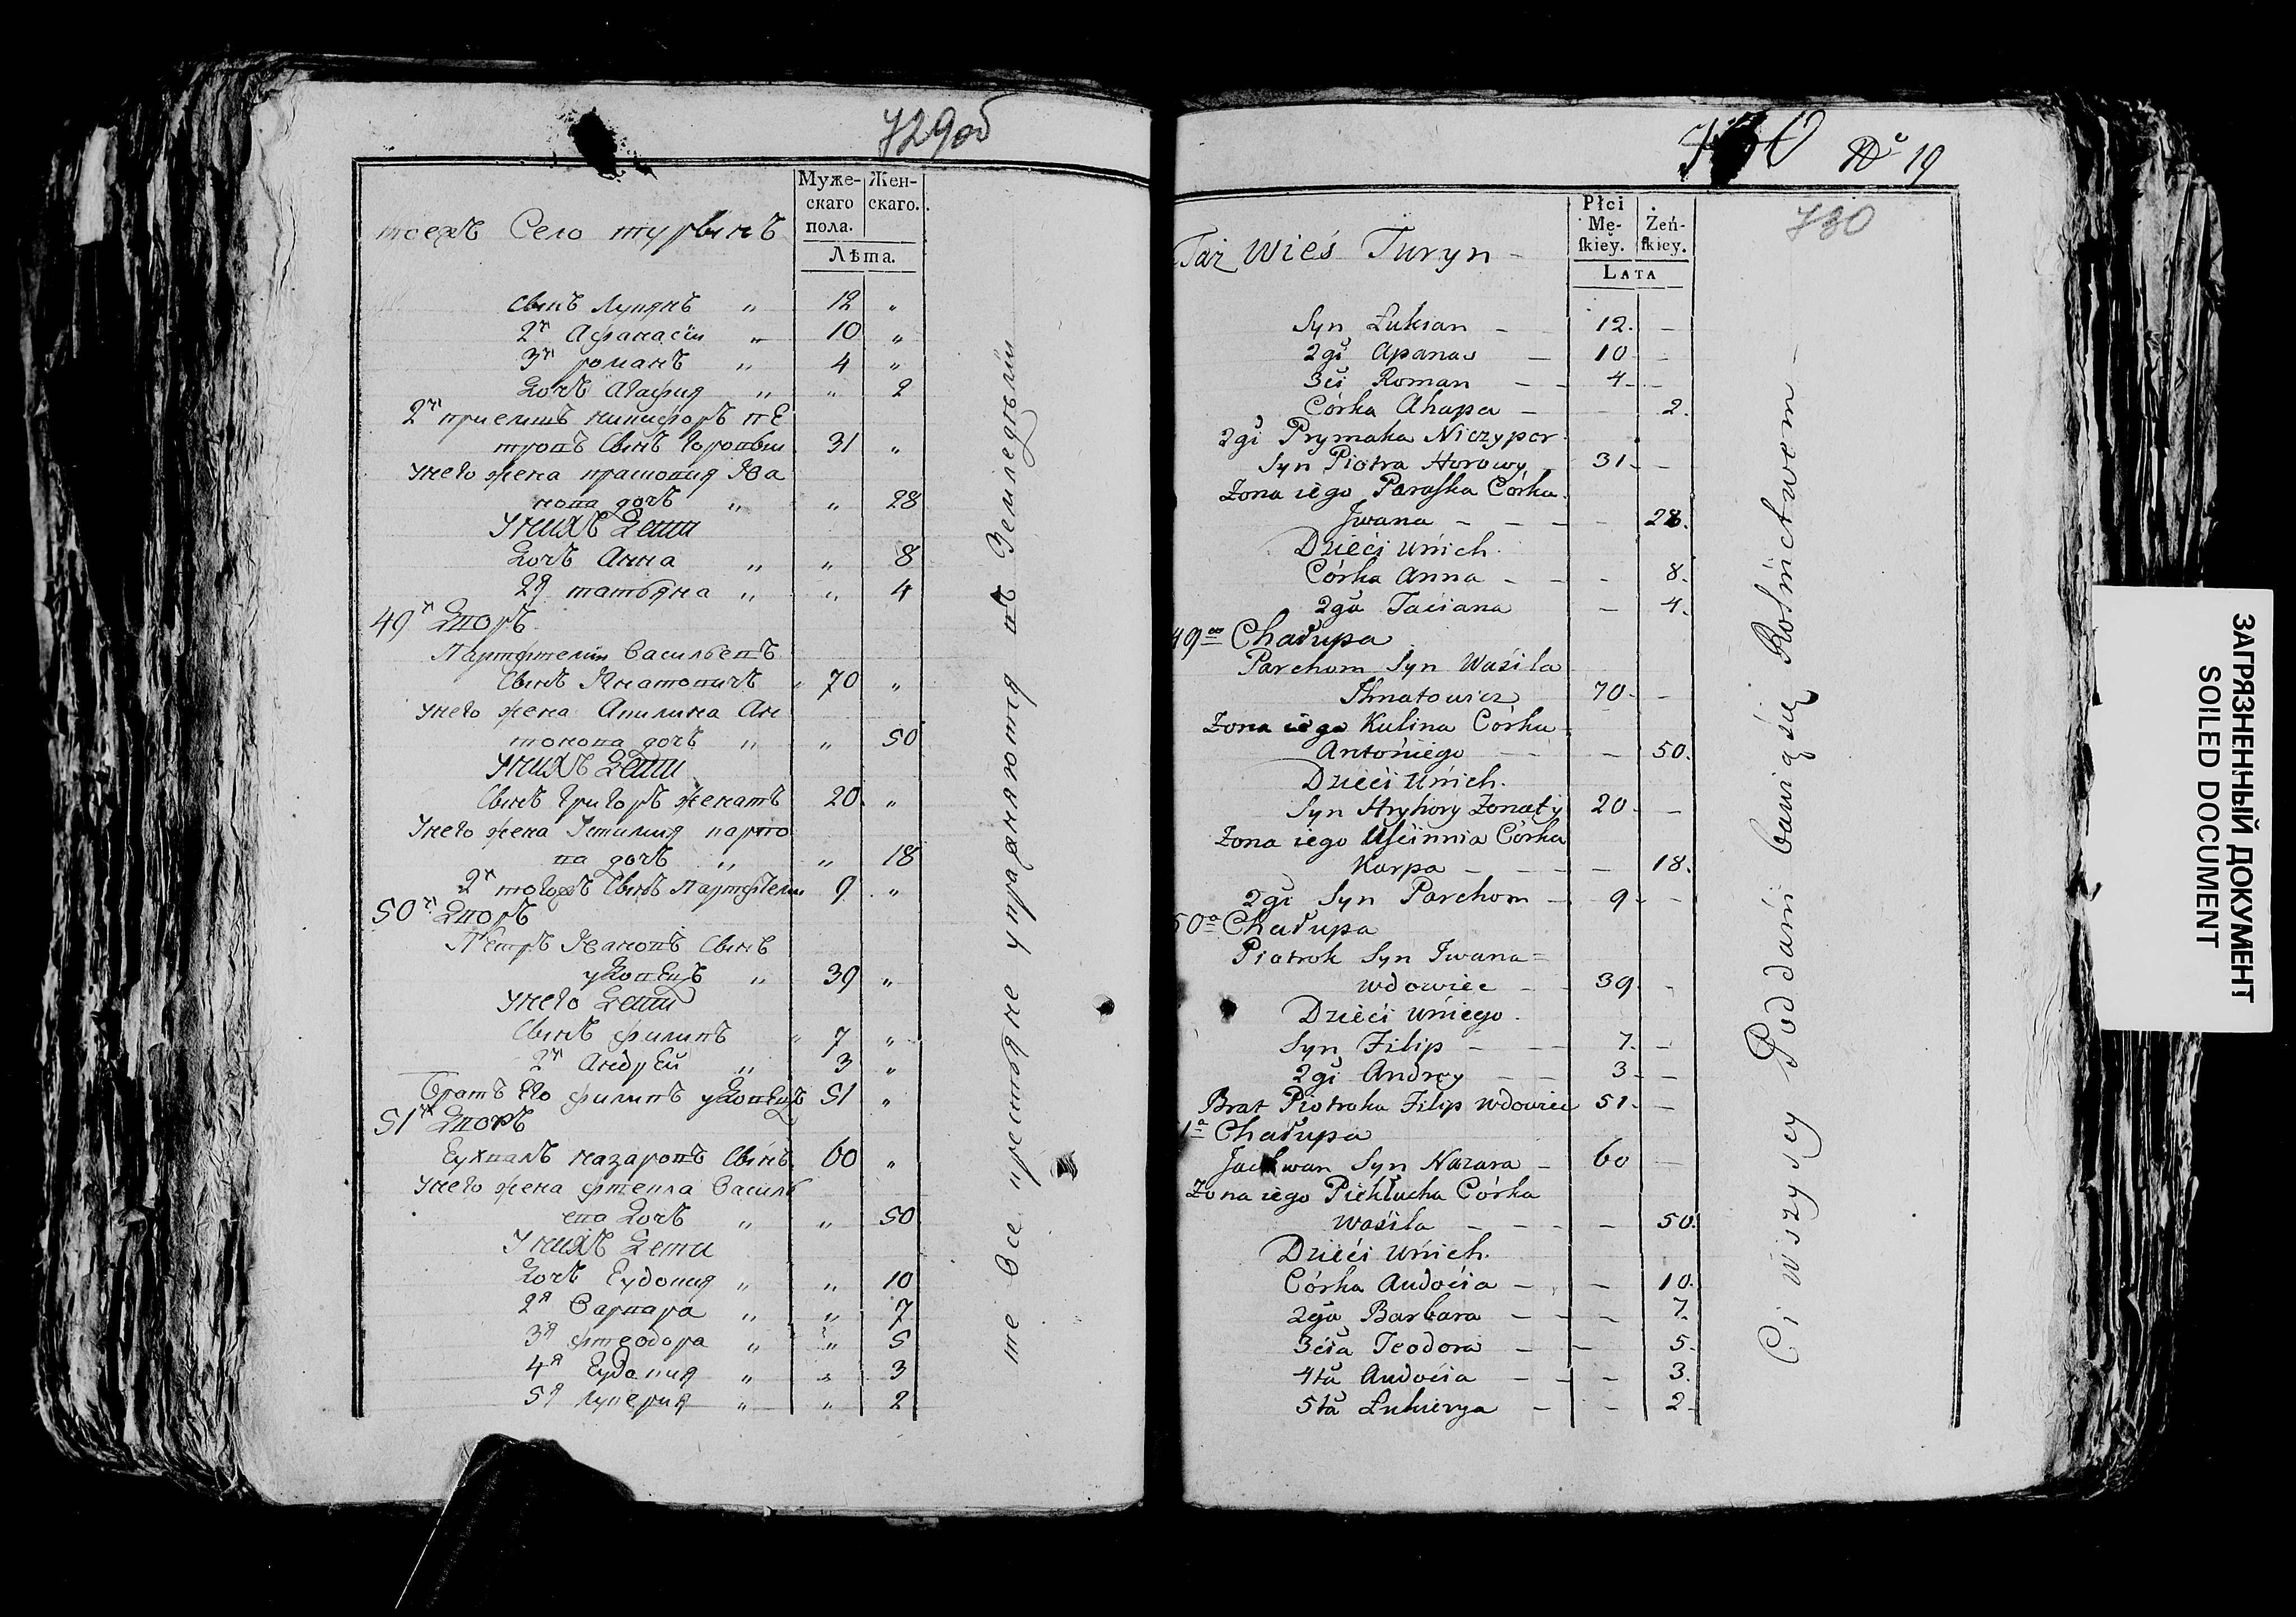 729об
Муже-
скаго
пола.
Жен-
скаго.
Лѣта.
тоежъ Село турынъ
Сынъ Лукянъ „ 12 „
2й Афанасіи „ 10 „
3й романъ „ 4 „
Дочь Агафия „ „ 2
2й приемышъ никифоръ пЕ
тровъ Сынъ 31 „
Унего жена прасковия Ива
нова дочь „ „ 28
Унихъ Дети
Дочь Анна „ „ 8
2я татьяна „ „ 4
49й Дворъ
Василъевъ
Сынъ Игнатовичъ „ 70 „
Унего жена Акилина Ан
тонова дочь „ „ 50
Унихъ Дети
Сынъ Григоръ женатъ 20 „
Унего жена Устиния карпо
ва дочь „ „ 18
2й тогожъ Сынъ 9 „
50й Дворъ
ПЕтръ Ивановъ Сынъ
вдовецъ „ 39 „
Унего Дети
Сынъ филипъ „ 7 „
2й АндрЕй „ 3 „
братъ Его филипъ вдовецъ 51 „
51й Дворъ
назаровъ Сынъ 60 „
Унего жена фтекла Василь
ева Дочь „ „ 50
Унихъ Дети
Дочь Еудокия „ „ 10
2я Варвара „ „ 7
3я фтеодора „ „ 5
4я Еудокия „ „ 3
5я лукерия „ „ 2
те все крестьяне упражняются въ Земледѣліи
730 No 19
730
Płci
Mę-
skiey.
Żeń-
skiey.
LATA
Taż Wieś Turyn -
Syn Łukian - 12. -
2gi Apanas - 10 -
3ci Roman - - 4 - -
Córka Ahapa - - 2.
2gi Prymaka Niczypor
Syn Piotra Horowy 31 - -
Żona iego Paraska Córka
Jwana - - - - 28.
Dzieci unich.
Córka Anna - - - 8.
2ga Taciana - 4.
49a Chałupa
Parchom Syn Wasila
Ihnatowicz 70 - -
Żona iego Kulina Córka
Antoniego - - 50.
Dzieci unich.
Syn Hryhory Żonaty 20 - -
Żona iego Uscinnia Córka
Karpa - - - - 18.
2gi Syn Parchom - 9 - -
50a Chałupa
Piotrok Syn Iwana =
wdowiec - - 39 -
Dzieci uniego.
Syn Filip - - 7. -
2gi Andrey - - 3 - -
Brat Piotroka Filip wdowiec 51 - -
1a Chałupa
Syn Nazara - 60 -
Żona iego Piekłucha Córka
Wasila - - - - 50.
Dzieci unich.
Córka Audocia - - - 10.
2ga Barbara - - - 7.
3cia Teodora - - 5.
4ta Audocia - - - 3.
5ta Łukierya - - 2 -
Ci wszyscy Poddani bawią się Rolnictwem -
ЗАГРЯЗНЕННЫЙ ДОКУМЕНТ
SOILED DOCUMENT